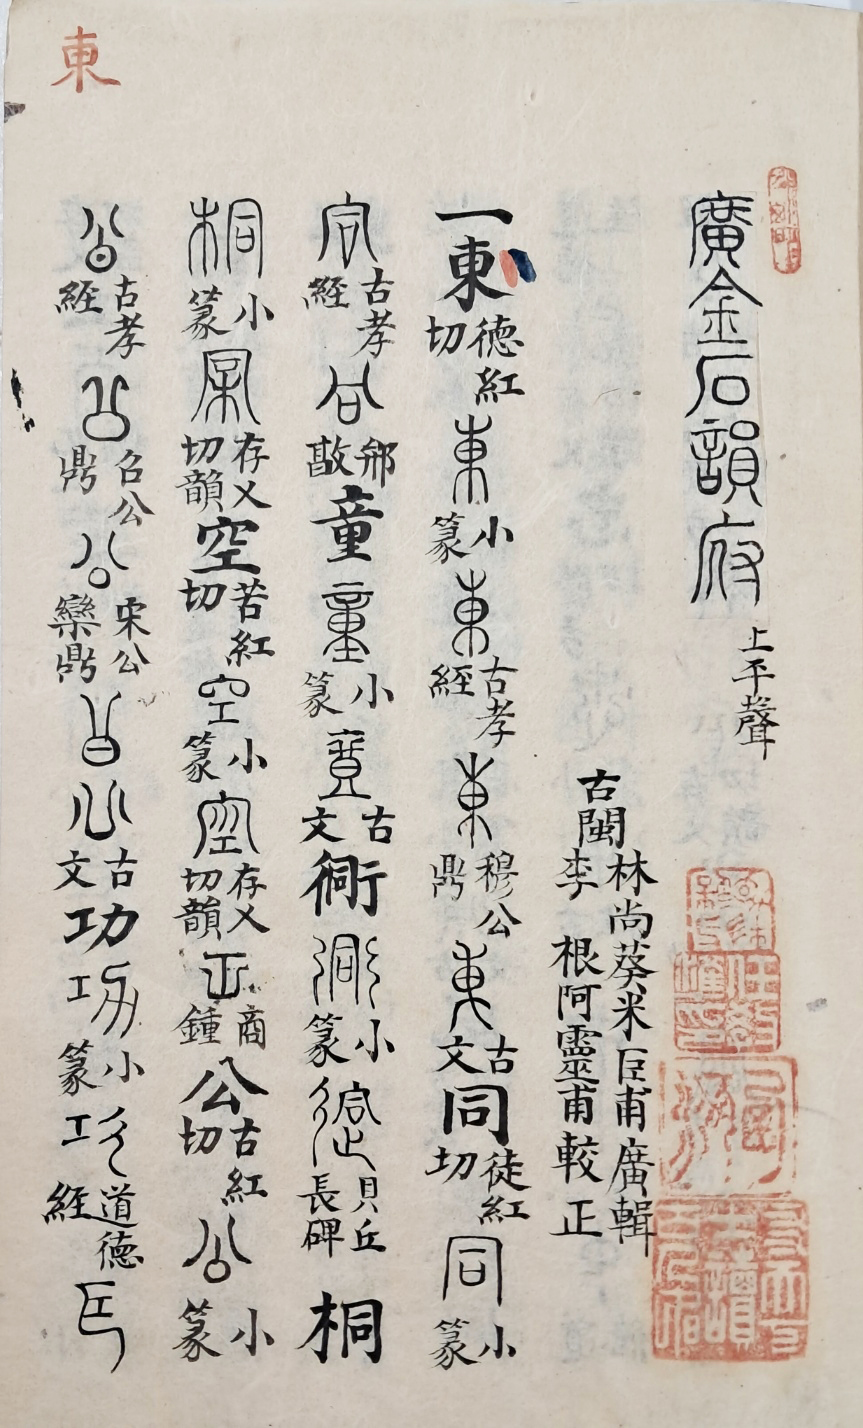 廣金石韻府 上平聲
古閩 林尚葵朱臣甫廣輯
李根阿靈甫較正
一東 德紅切 東 小篆 東 古孝經 東 穆公鼎 東 古文 同 徒紅切 同 小篆
同 古孝經 同 敔 童 童 小篆 童 古文 衕 衕 小篆 衕 貝丘長碑 桐
桐 小篆 桐 存乂切韻 空 苦紅切 空 小篆 空 存乂切韻 空 商鍾 公 古紅切 公 小篆
公 古孝經 公 召公鼎 公 宋公欒鼎 公 公 古文 功 功 小篆 功 道德經
東